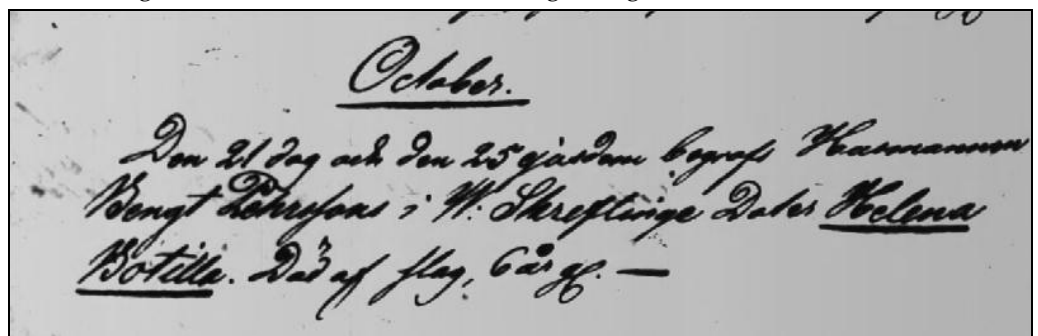 October.
Den 21 dog och den 25 ejusdem begrofs Husmannen
Bengt Pehrssons i W. Skreflinge Doter Helena
Botilla. Död af slag, 6 år gl. —